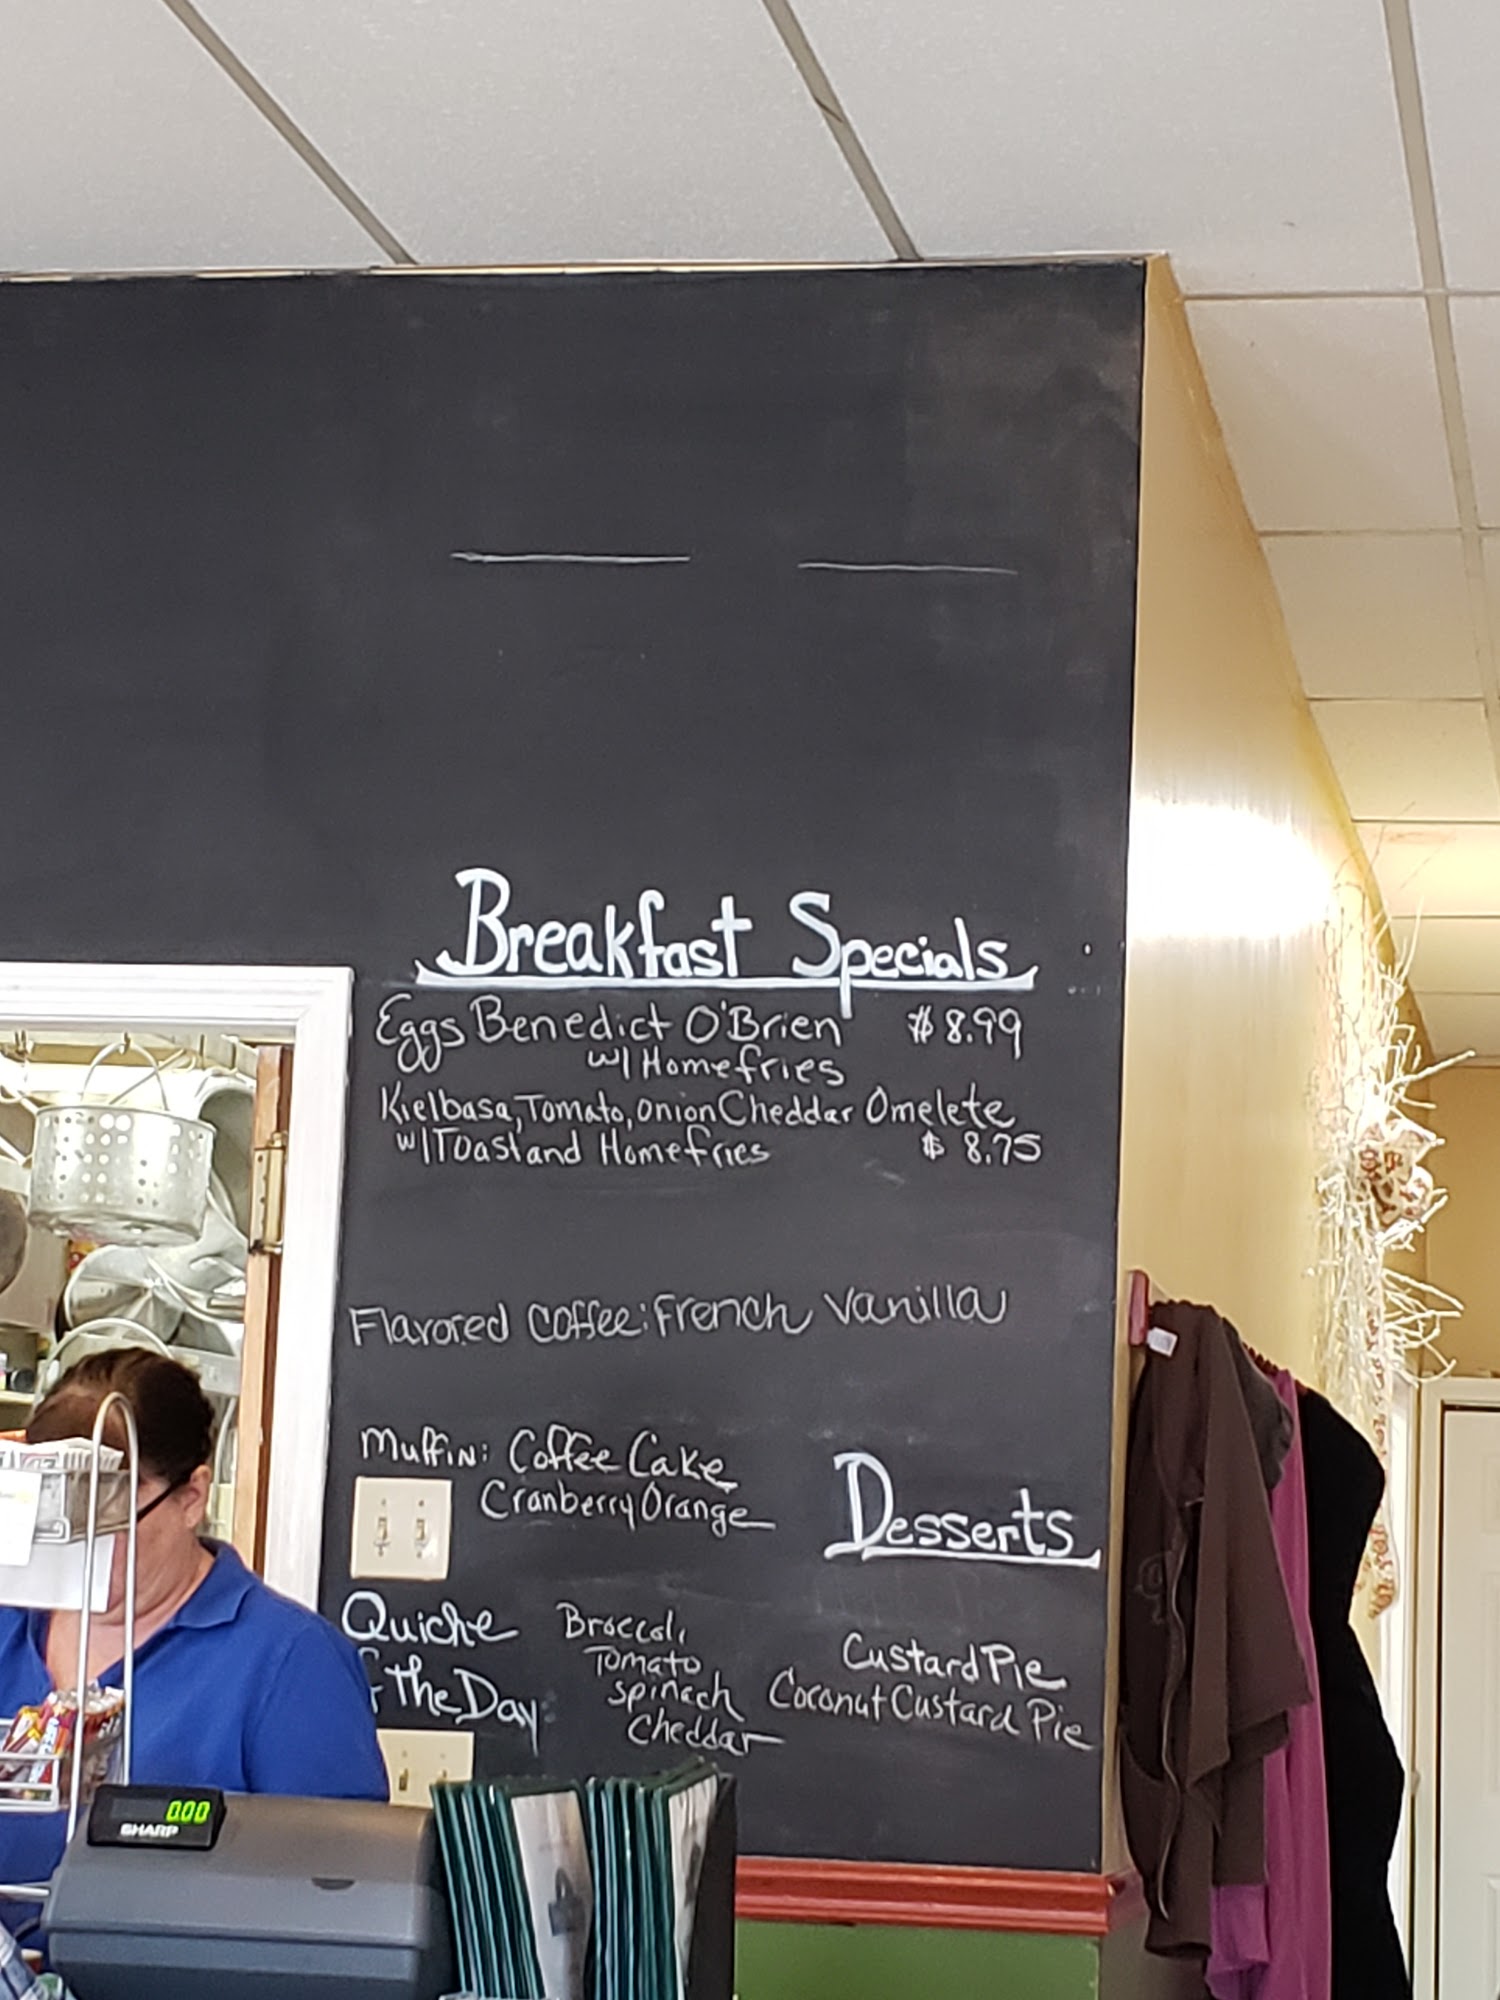 Breakfast Specials
Eggs Benedict O'Brien $8.99
w/ Homefries
Kielbasa, Tomato, Onion Cheddar Omelete
w/ Toast and Homefries $8.75
Flavored Coffee: French Vanilla
Muffin: Coffee Cake
Cranberry Orange
Desserts
Quiche
f the Day:
Broccoli
Tomato
Spinach
Cheddar
Custard Pie
Coconut Custard Pie
0.00
SHARP